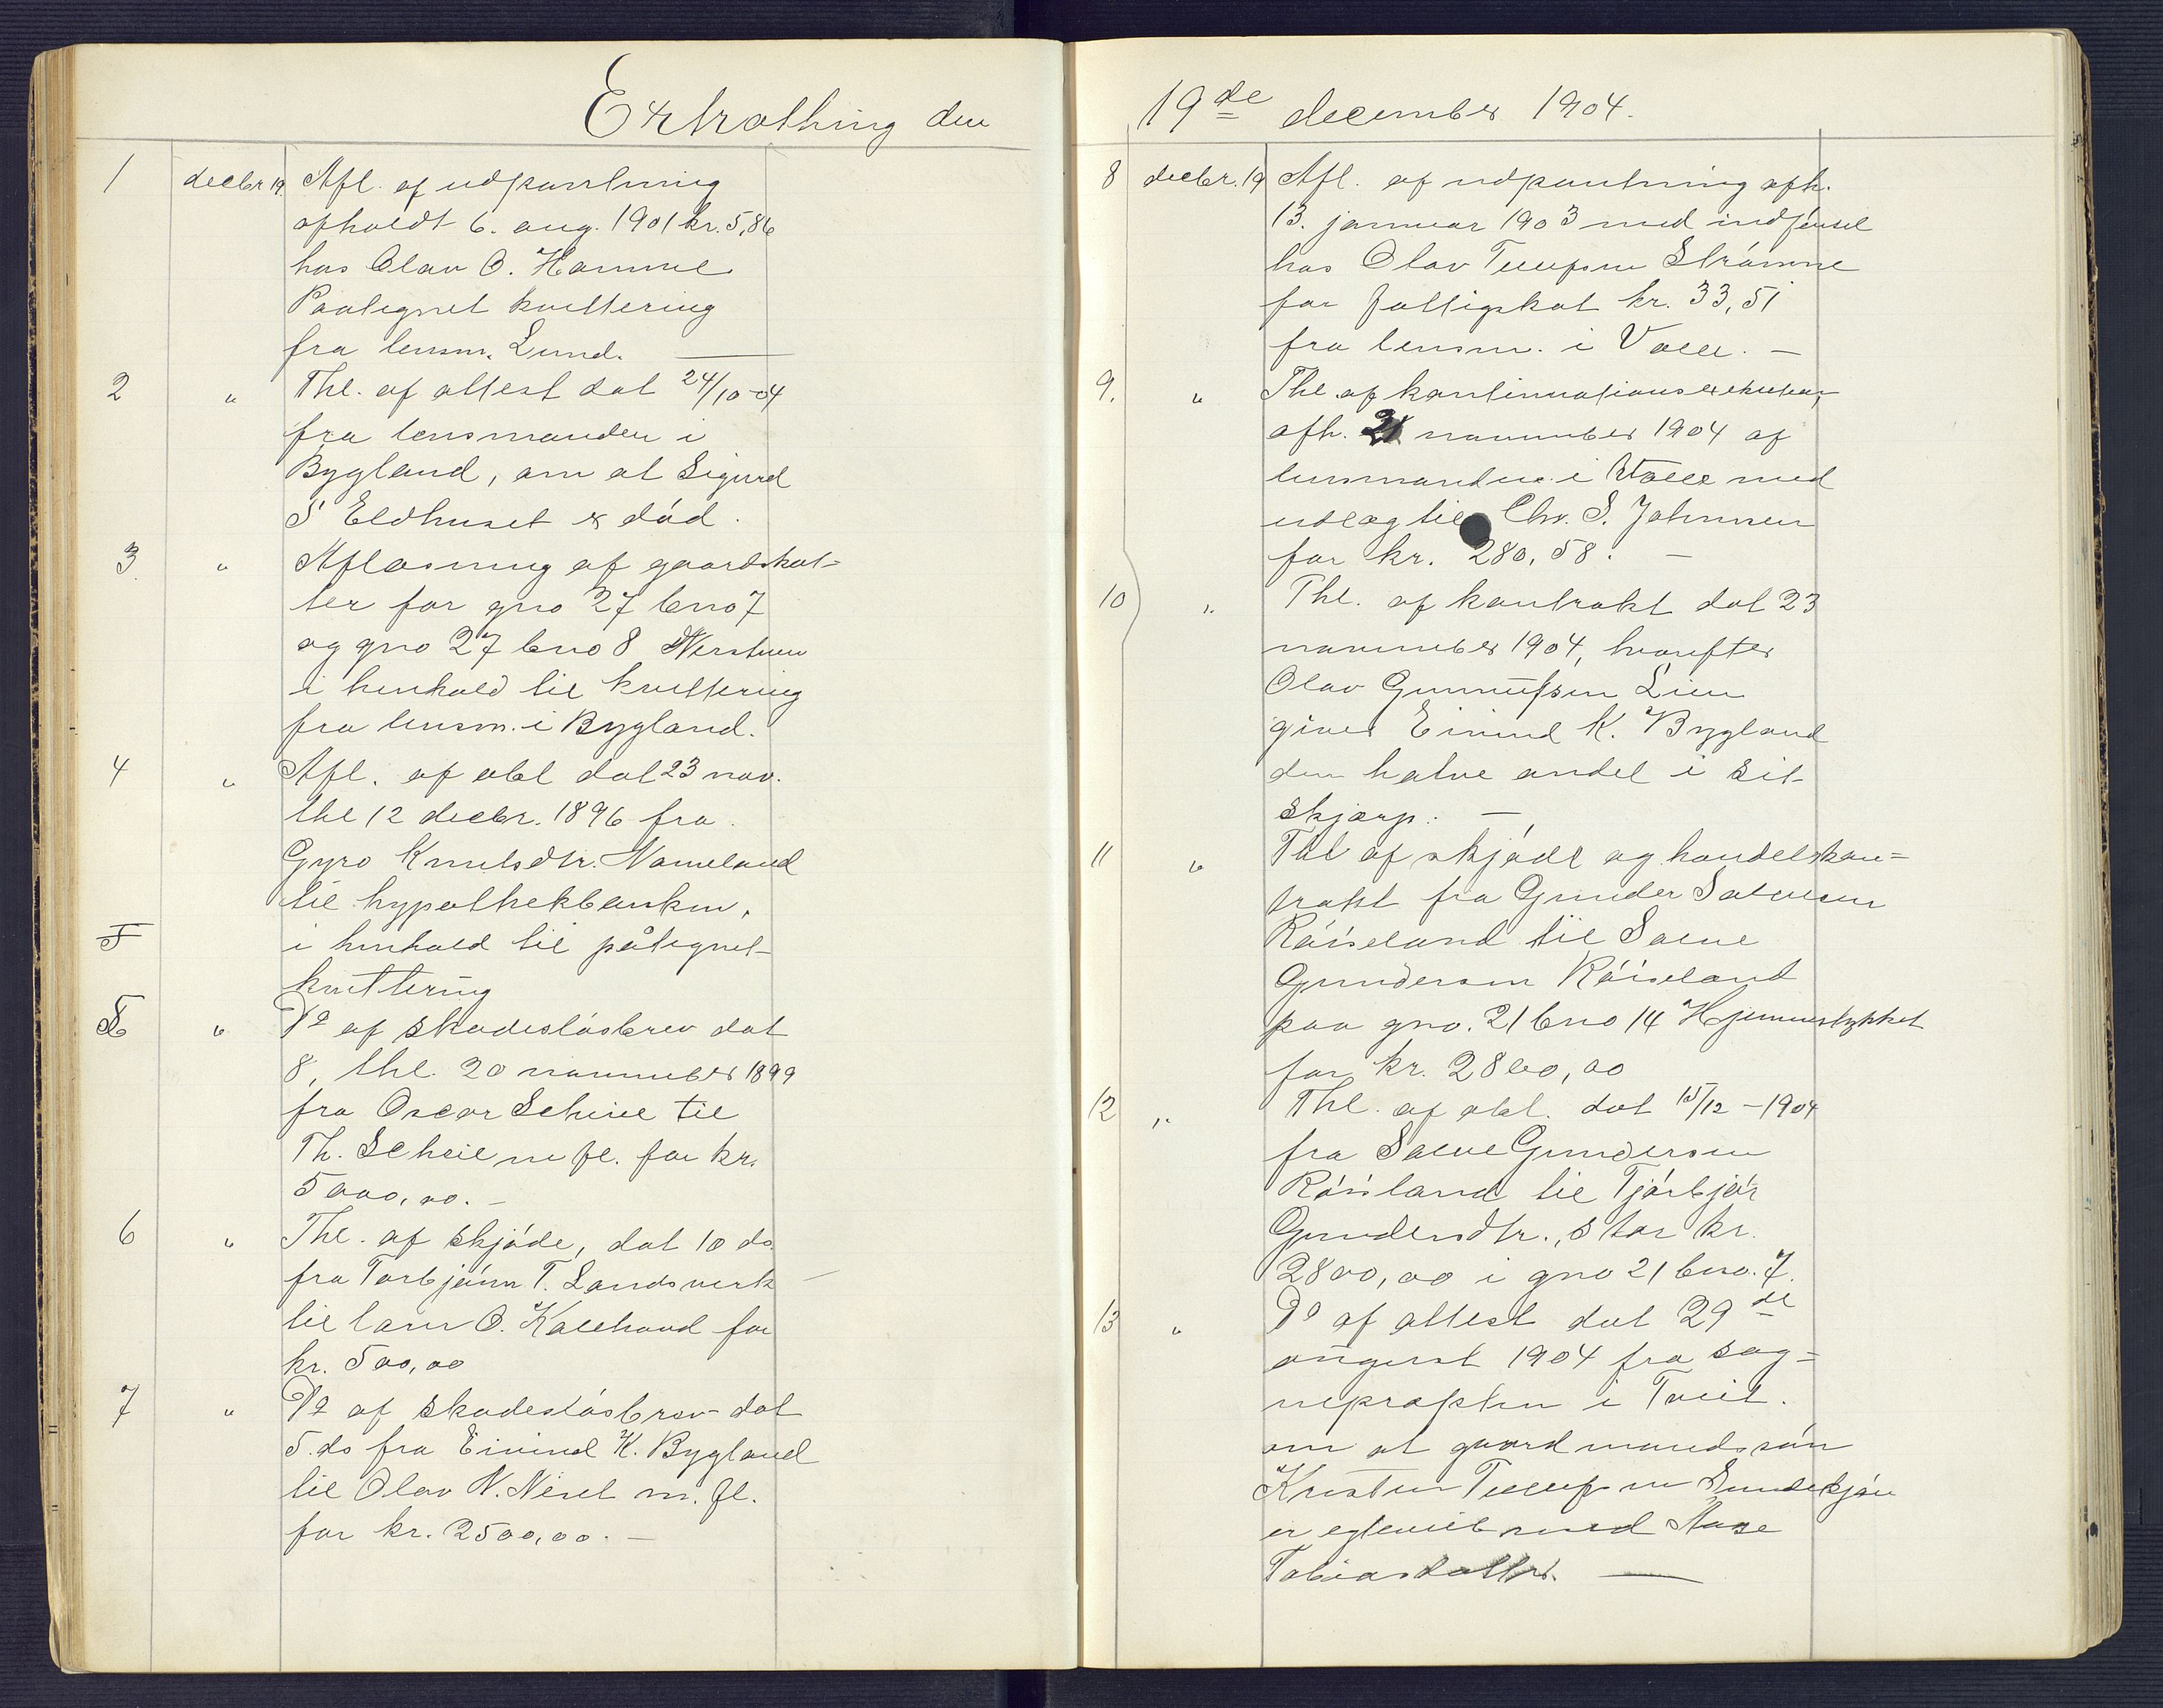 Extrathing den
1 decbr 19. Afl. af udpantning
afholdt 6. aug. 1901 kr. 5,86
hos Olav O. Hamre
Paategnet kvittering
fra lensm. Lund. —
2 " Thl. af attest dat 24/10-04
fra lensmanden i
Bygland, om at Sigurd
S Eldhuset er död.
3 " Aflæsning af gaardskat-
ter for gno 27 bno 7
og gno 27 bno 8 Nerstuen
i henhold til kvittering
fra lensm. i Bygland.
4 " Afl. af obl dat 23 nov.
thl 12 decbr. 1896 fra
Gyro Knutsdtr. Nomeland
til hypothekbanken,
i henhold til påtegnet
kvittering
5 " Do af skadeslösbrev dat
8, thl. 20 november 1899
fra Oscar Scheie til
Th. Scheie m fl. for kr.
5000,00. —
6 " Thl. af skjöde, dat 10 ds.
fra Torbjörn T. Landsverk —
til Tarn O. Kallhovd for
kr. 500,00
7 " Do af skadeslösbrev dat
5. ds fra Eivind K. Bygland
til Olav N. Neset m. fl.
for kr. 2500,00. —
19de december 1904.
8 decbr. 19 Afl. af udpantning afh.
13. januar 1903 med indförsel
hos Olav Tellefsen Strömme
for fattigskat kr. 33,51
fra lensm. i Valle. —
9. " Thl. af kontinuationsexekution,
afh. 21 november 1904 af
lensmanden i Valle med
udlæg til Chr. S. Johnsen
for kr. 280,58. —
10 " Thl. af kontrakt dat 23
november 1904, hvorefter
Olav Gunnufsen Lien
giver Eivind K. Bygland
den halve andel i sit
skjærp. —
11 " Thl af skjöde og handelskon-
trakt fra Gunder Salvesen
Röiseland til Salve
Gundersen Röiseland
paa gno. 21 bno 14 Hjemmestykket
for kr. 2800,00
12 " Thl. af obl. dat 15/12 - 1904
fra Salve Gundersen
Röisland til Tjörbjör
Gundersdtr., stor kr.
2800,00 i gno 21 bno. 7.
13 " Do af attest dat 29de
august 1904 fra sog-
nepræsten i Tveit.
om at gaardmandssön
Kristen Tellefsen Sundskjön
er egteviet med Aase
Tobiasdatter. —